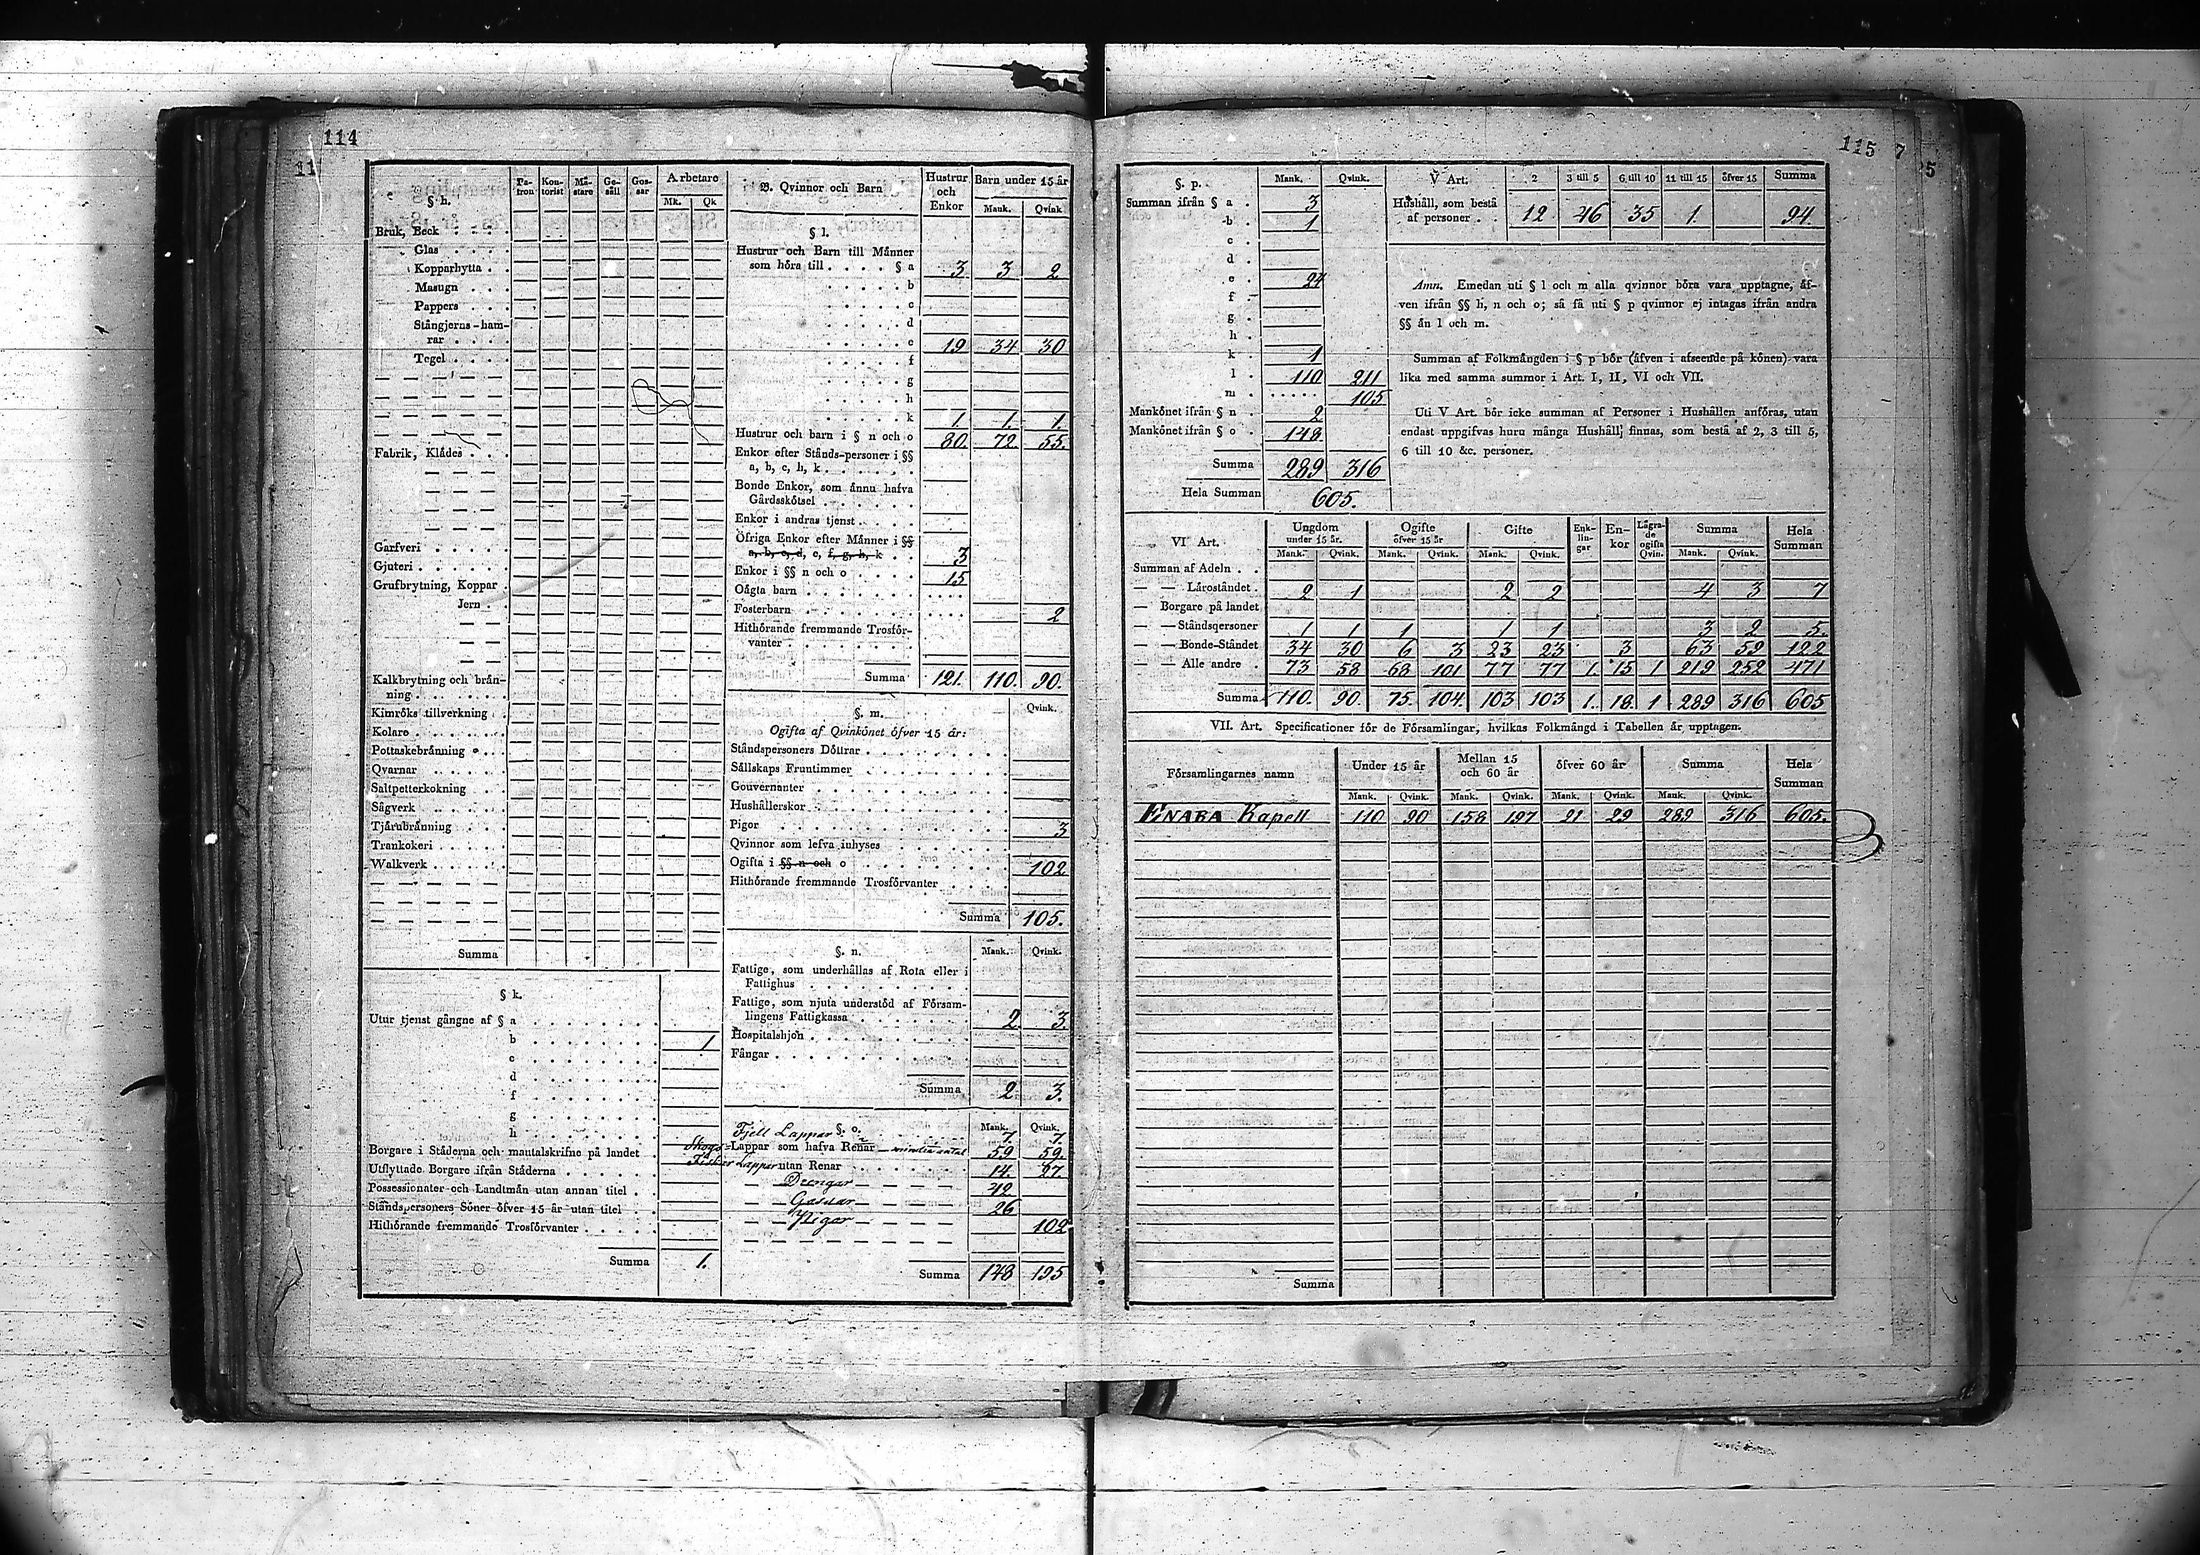 114
11
§ h.
Patron Kontorist Mästare Gesäll Gossar Arbetare
Mk. Qk
Bruk, Beck
Glas
Kopparhytta
Masugn
Pappers
Stångjerns-hamrar
Tegel
Fabrik, Klådes
Garfveri
Gjuteri
Grufbrytning, Koppar
Jern
Kalkbrytning och brånning
Kimröks tillverkning
Kolare
Pottaskebränning
Qvarnar
Saltpetterkokning
Sågverk
Tjårubrånning
Trankokeri
Walkverk
Summa
§ k.
Utur tjenst gångne af § a
b 1
c
d
f
g
h
Borgare i Ståderna och mantalskrifne på landet
Utflyttade Borgare ifrån Ståderna
Possessionater och Landtmån utan annan titel
Ståndspersoners Söner öfver 15 år utan titel
Hithörande fremmande Trosförvanter
Summa 1.
B. Qvinnor och Barn Hustrur och Enkor Barn under 15 år
Mank. Qvink
§ l.
Hustrur och Barn till Månner
som höra till § a 3 3 2
b
c
d
e 19 34 30
f
g
h
k 1. 1. 1.
Hustrur och barn i § n och o 80. 72 55.
Enkor efter Stånds-personer i §§
a, b, c, h, k
Bonde Enkor, som ånnu hafva
Gårdsskötsel
Enkor i andras tjenst
Öfriga Enkor efter Månner i §§
a, b, c, d, e, f, g, h, k 3
Enkor i §§ n och o 15
Oågta barn
Fosterbarn 2
Hithörande fremmande Trosförvanter
Summa 121. 110. 90.
§. m. Qvink.
Ogifta af Qvinkönet öfver 15 år:
Ståndspersoners Döttrar
Sållskaps Fruntimmer
Gouvernanter
Hushållerskor
Pigor 3
Qvinnor som lefva inhyses
Ogifta i §§ n och o 102
Hithörande fremmande Trosförvanter
Summa 105.
§. n. Mank. Qvink.
Fattige, som underhållas af Rota eller i
Fattighus
Fattige, som njuta understöd af Församlingens Fattigkassa 2 3
Hospitalshjon
Fångar
Summa 2 3.
§. o. Mank. Qvink.
Fjell Lappar 7. 7.
Skogs-Lappar som hafva Renar — mindre antal 59 59
Fisker Lappar utan Renar 14. 27.
Drengar 42
Gossar 26
Pigor 102
Summa 148 195
115 7
5
§. p. Mank. Qvink.
Summan ifrån § a 3
b 1
c
d
e 24
f
g
h
k 1
l 110 211
m 105
Mankönet ifrån § n 2
Mankönet ifrån § o 148
Summa 289 316
Hela Summan 605.
V Art. 2 3 till 5 6 till 10 11 till 15 öfver 15 Summa
Hushåll, som bestå
af personer 12 46 35 1 94.
Anm. Emedan uti § l och m alla qvinnor böra vara upptagne, åf-
ven ifrån §§ h, n och o; så få uti § p qvinnor ej intagas ifrån andra
§§ ån l och m.
Summan af Folkmångden i § p bör (åfven i afseende på könen) vara
lika med samma summor i Art. I, II, VI och VII.
Uti V Art. bör icke summan af Personer i Hushållen anföras, utan
endast uppgifvas huru många Hushåll finnas, som bestå af 2, 3 till 5,
6 till 10 &c. personer.
VI Art. Ungdom under 15 år. Ogifte öfver 15 år Gifte Enklingar Enkor Lågrade ogifta Qvin. Summa Hela Summan
Mank. Qvink. Mank. Qvink. Mank. Qvink. Mank. Qvink.
Summan af Adeln
— — Låroståndet 2 1 2 2 4 3 7
— Borgare på landet
— — Ståndsqersoner 1 1 1 1 1 3 2 5.
— — Bonde-Ståndet 34 30 6 3 23 23 3 63 59 122
— — Alle andre 73 58 68 101 77 77 1. 15 1 219 252 471
Summa 110. 90. 75. 104. 103 103 1. 18. 1 289 316 605
VII. Art. Specificationer för de Församlingar, hvilkas Folkmångd i Tabellen år upptagen.
Församlingarnes namn Under 15 år Mellan 15 och 60 år öfver 60 år Summa Hela Summan
Mank. Qvink. Mank. Qvink. Mank. Qvink. Mank. Qvink.
ENARA Kapell 110 90 158 197 21 29 289 316 605.
Summa